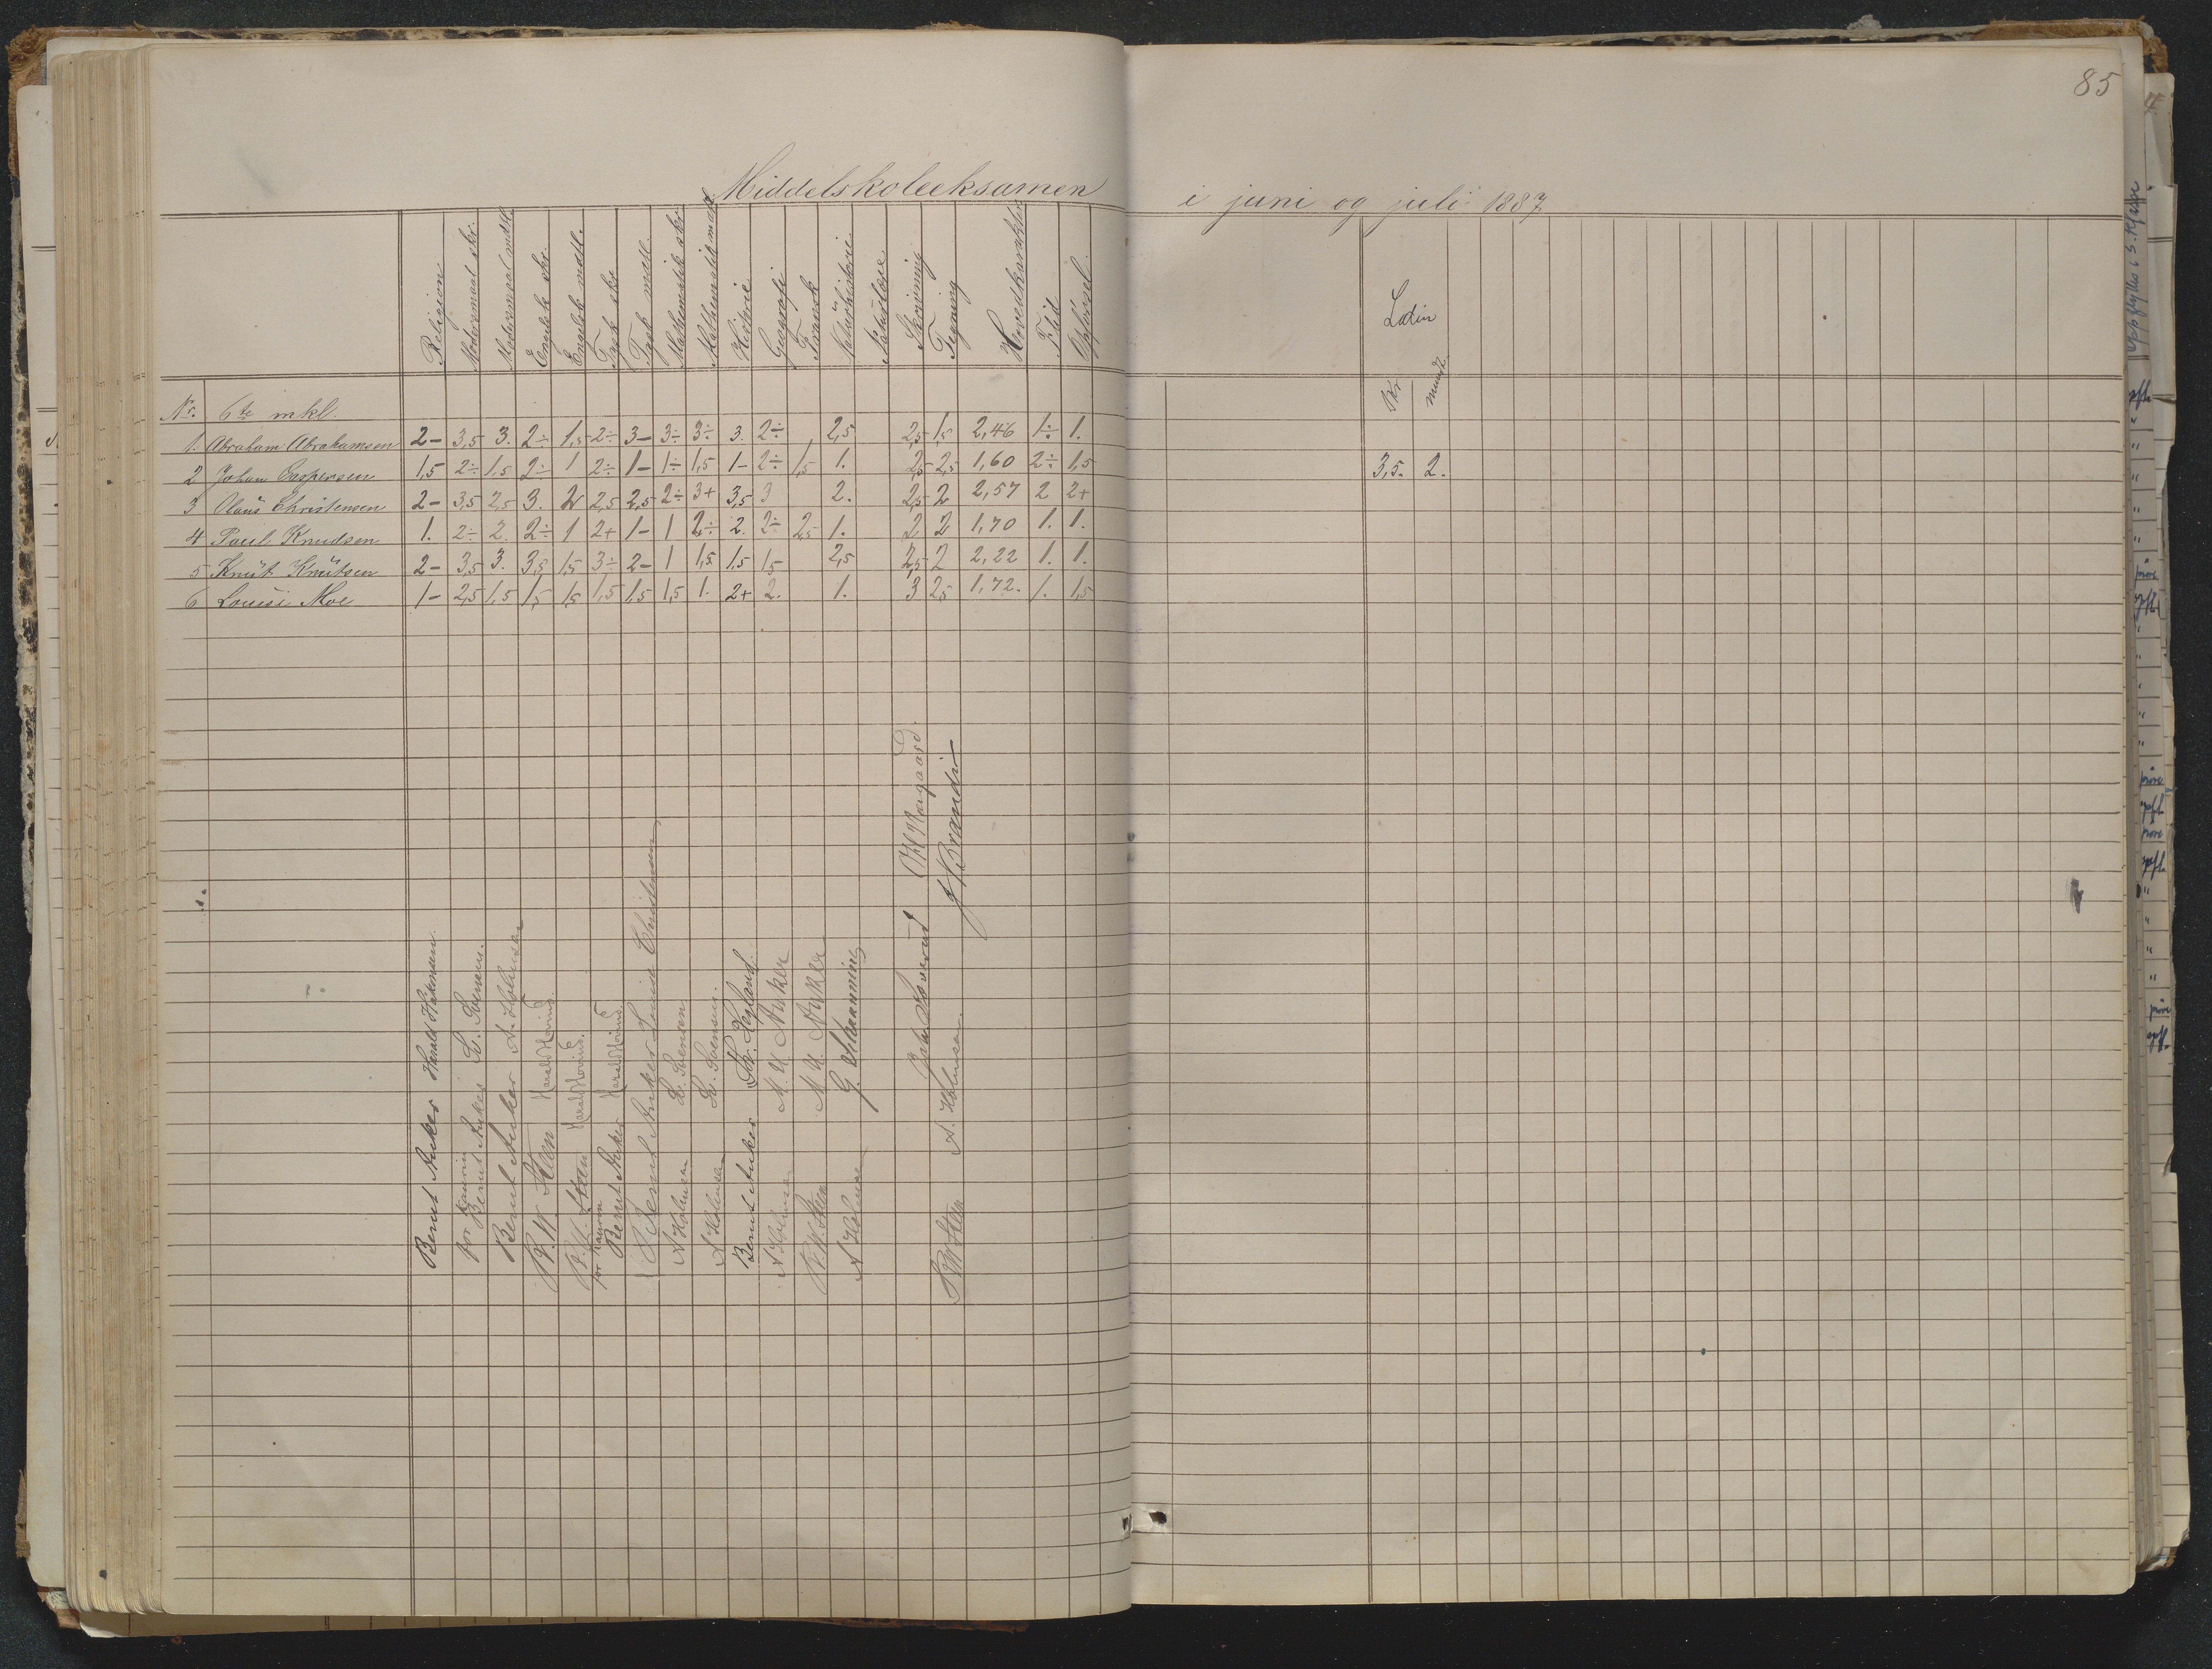 85
Middelskoleeksamen i juni og juli 1887
Religion Modersmaal skr. Modersmaal mdtl. Engelsk skr. Engelsk mdtl. Tysk skr. Tysk mdtl. Mathematik skr. Mathematik mdtl. Historie Geografi Fransk Naturhistorie Naturlære Skrivning Tegning Hovedkarakter Flid Opførsel. Latin
Skr. mundtl.
Nr. 6te mkl.
1. Abraham Abrahamsen 2- 3,5 3. 2÷ 1,5 2÷ 3- 3÷ 3÷ 3. 2÷ 2,5 2,5 1,5 2,46 1÷ 1.
2 Johan Caspersen 1,5 2÷ 1,5 2÷ 1 2÷ 1- 1÷ 1,5 1- 2÷ 1,5 1. 2,5 2,5 1,60 2÷ 1,5 3,5. 2.
3 Olaus Christensen 2- 3,5 2,5 3. 2 2,5 2,5 2÷ 3+ 3,5 3 2. 2,5 2 2,57 2 2+
4 Paul Knudsen 1. 2÷ 2. 2÷ 1 2+ 1- 1 2÷ 2. 2÷ 2,5 1. 2 2 1,70 1. 1.
5 Knut Knutsen 2- 3,5 3. 3,5 1,5 3÷ 2- 1 1,5 1,5 1,5 2,5 2,5 2 2,22 1. 1.
6 Louise Moe 1- 2,5 1,5 1,5 1,5 1,5 1,5 1,5 1. 2+ 2. 1. 3 2,5 1,72. 1. 1,5
Bernt Anker Harald Hakonsen.
for Kaurin Bernt Anker L. Svensen.
Bernt Anker A. Holmsen
P. W. Steen Harald Hovind.
P. W. Steen Harald Hovind.
for Kaurin Bernt Anker Harald Hovind.
Bernt Anker Louise Christensen
A Holmsen L. Svensen
A Holmsen L. Svensen.
Bernt Anker
A Holmsen M. A. Anker
P. W. Steen M. A. Anker
A Holmsen
P W Steen A. Holmsen